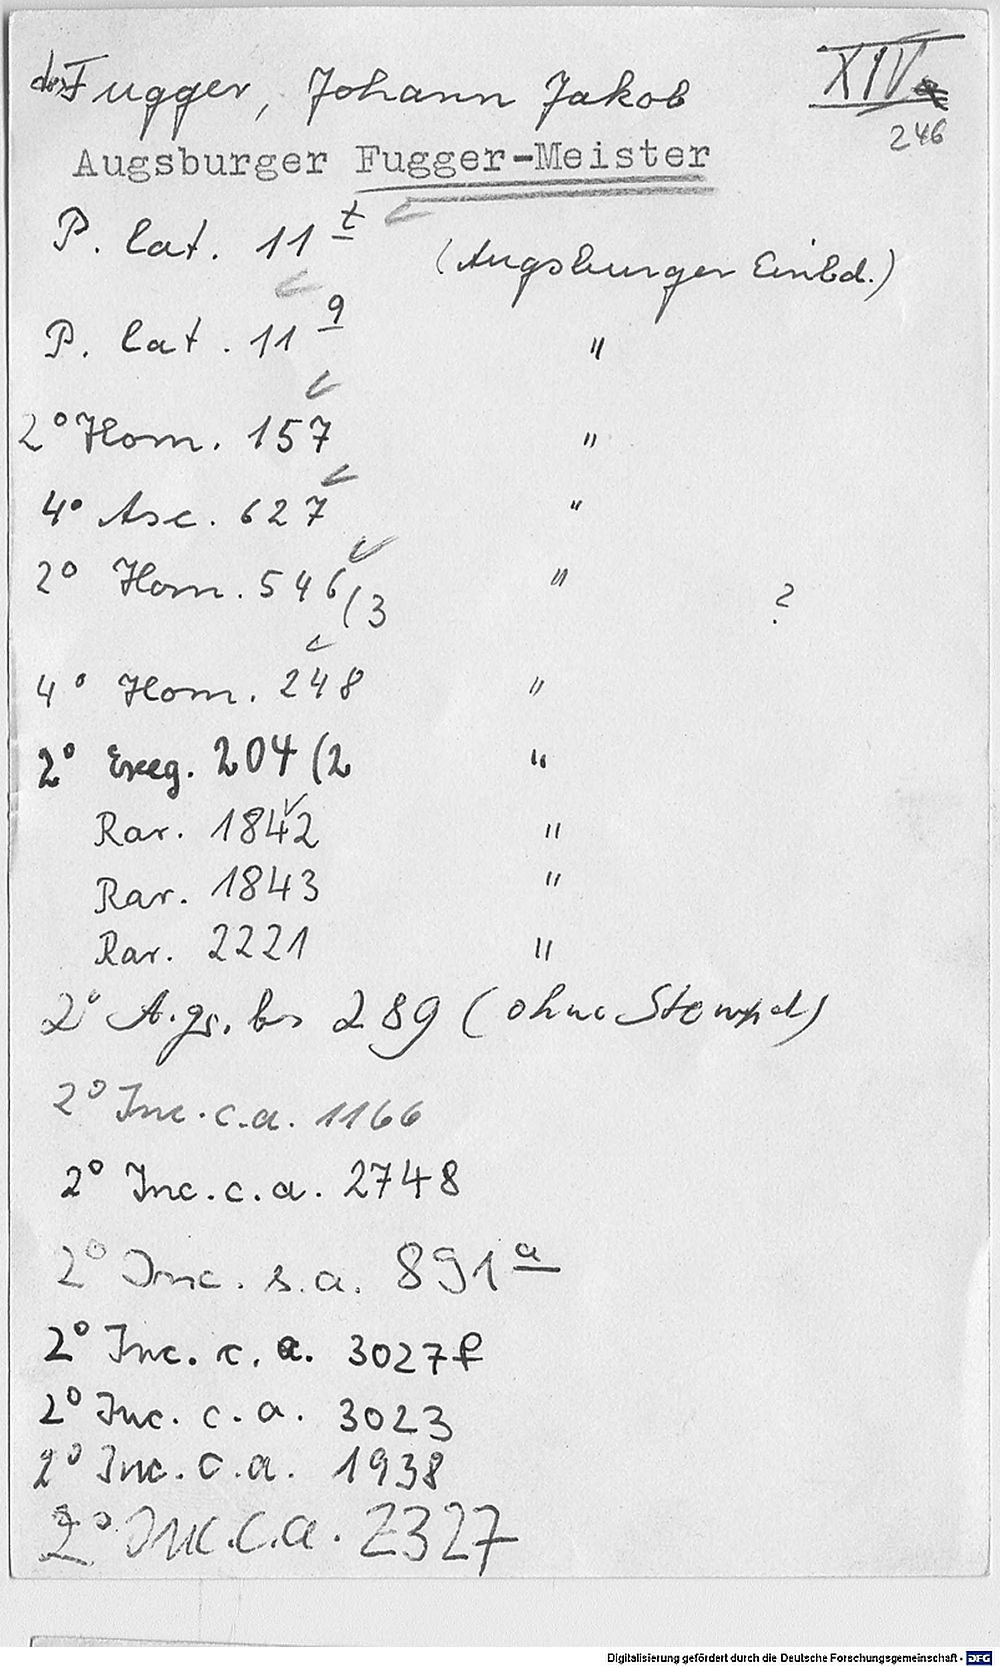 Fugger, Johann Jakob
XIV
246
Augsburger Fugger-Meister
P. lat. 11 t (Augsburger Einbd.)
P. lat. 11 q "
2° Hom. 157 "
4° Asc. 627 "
2° Hom. 546/3 " ?
4° Hom. 248 "
2° Exeg. 204 (2 "
Rar. 1842 "
Rar. 1843 "
Rar. 2221 "
2° A. gr. b. 289 (ohne Stempel)
2° Inc. c. a. 1166
2° Inc. c. a. 2748
2° Inc. s. a. 891 a
2° Inc. c. a. 3027 f
2° Inc. c. a. 3023
2° Inc. c. a. 1938
2° Inc. c. a. 2327
Digitalisierung gefördert durch die Deutsche Forschungsgemeinschaft - DFG